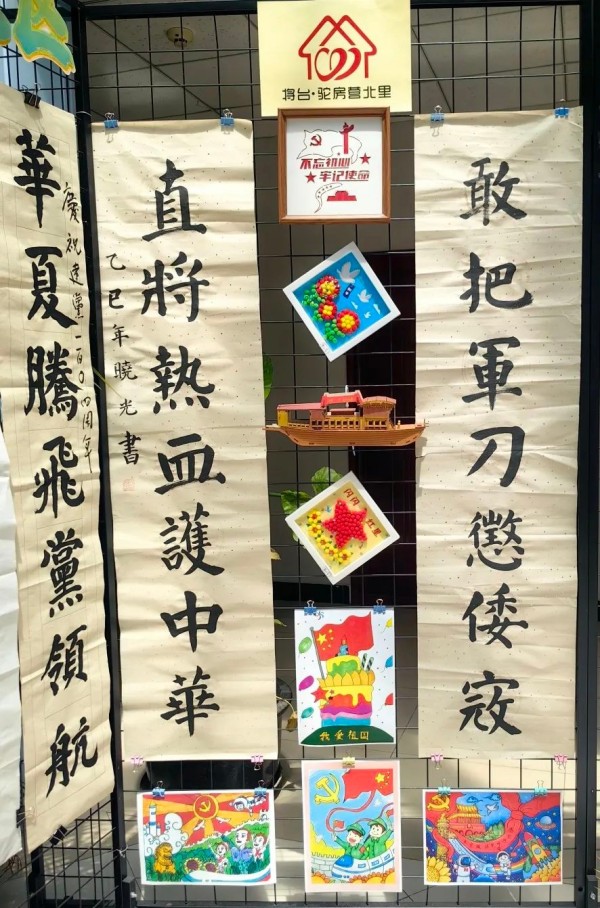 将台·驼房营北里
不忘初心
牢记使命
敢把軍刀懲倭寇
直將熱血護中華
乙巳年曉光書
華夏騰飛黨領航
慶祝建黨一百〇四周年
闪闪
红星
我爱祖国